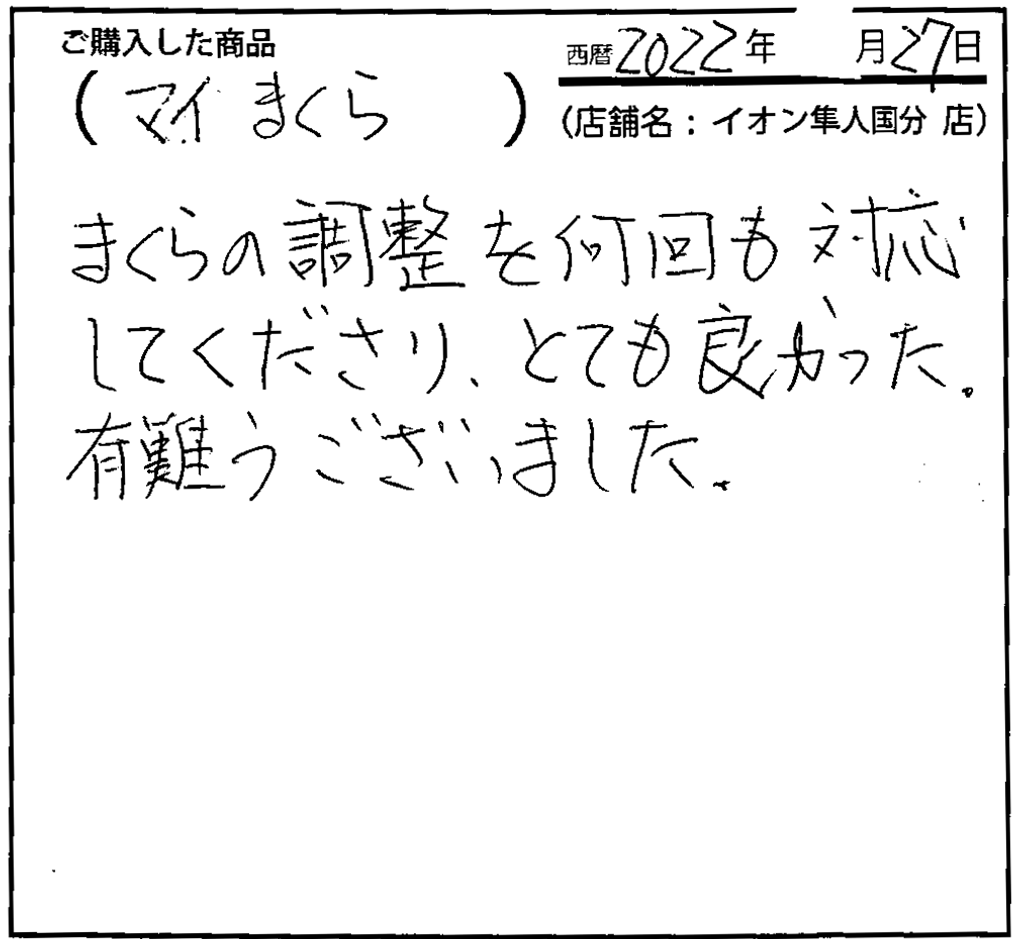 ご購入した商品
西暦2022年 月27日
(マイまくら)
(店舗名：イオン隼人国分 店)
まくらの調整を何回も対応
してくださり、とても良かった。
有難うございました。